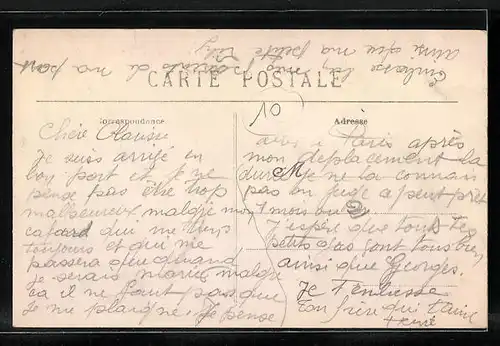 Embrasse bien mes parents de ma part
ainsi que ma petite
CARTE POSTALE
10
Correspondance
Chère
Je suis arrivé en
bon port et je ne
pense pas être trop
malheureux, malgré mon
cafard qui me tiens
toujours et qui me
passera que quand
je serais marié malgré
ça il ne faut pas que
je me plaigne. Je pense
Adresse
à Paris après
mon déplacement la
durée je ne la connais
pas on juge a peut près
1 mois ou
J'espère que tout tes
petits gas sont tous bien
ainsi que Georges.
Je t'embrasse
ton frère qui t'aime